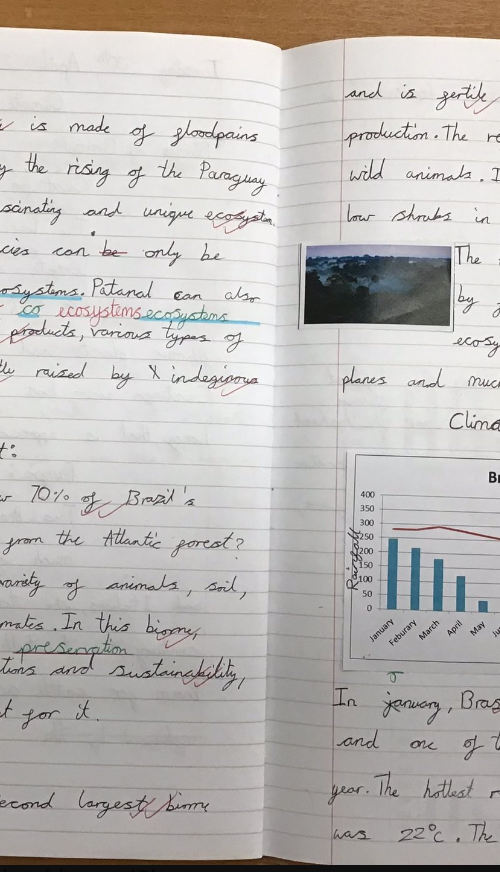 is made of gloodpains
the rising of the Paraguay
scinating and unique ecosystem.
cies can be only be
osystems. Patanal can also
co ecosystems ecosystems
products, various types of
raised by X indeginous
t:
70% of Brazil's
from the Atlantic forest?
variety of animals, soil,
mates. In this biome,
preservation
tions and sustainability,
t for it.
econd largest biome
and is gertile
production. The re
wild animals. I
low shrubs in
The
by
ecosy
planes and muc
Clima
Br
Rainfall
400
350
300
250
200
150
100
50
0
January
Feburary
March
April
May
J
In january, Bras
and one of t
year. The hottest
was 22°c. The